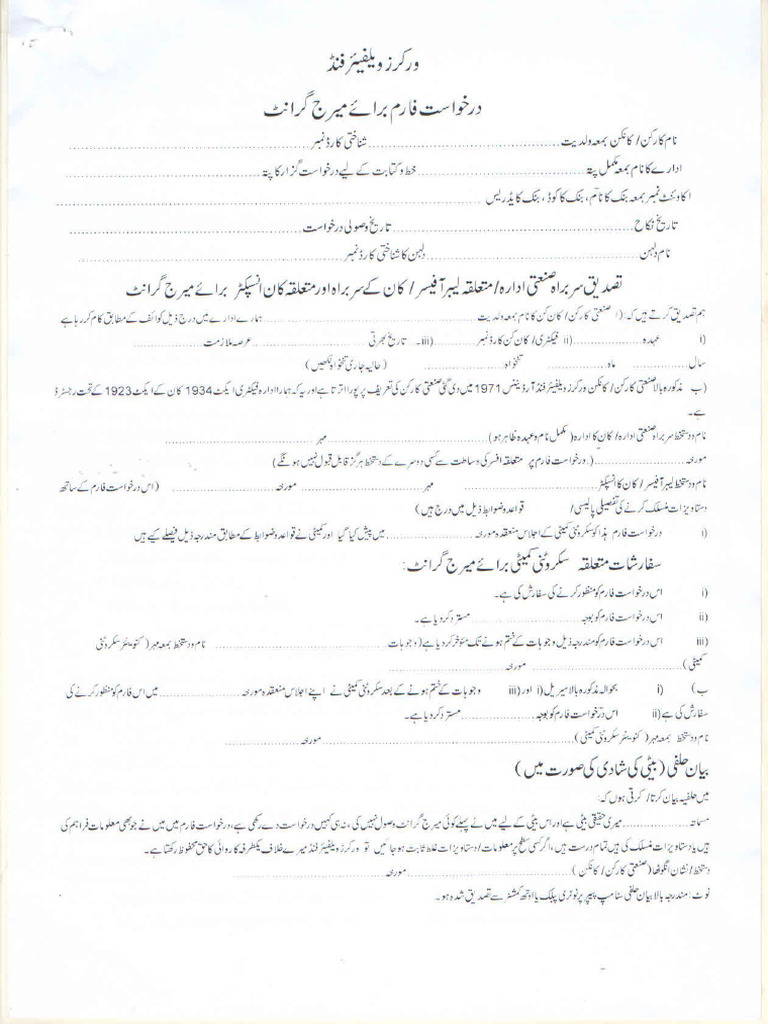 ورکرز ویلفیئر فنڈ
درخواست فارم برائے میرج گرانٹ
نام کارکن / کانکن بمعہ ولدیت ........................ شناختی کارڈ نمبر ........................
ادارے کا نام بمعہ مکمل پتہ ........................ خط و کتابت کے لیے درخواست گزار کا پتہ ........................
اکاؤنٹ نمبر بمعہ بنک کا نام، بنک کا کوڈ، بنک کا ایڈریس ........................
تاریخ نکاح ........................ تاریخ وصولی درخواست ........................
نام دلہن ........................ دلہن کا شناختی کارڈ نمبر ........................
تصدیق سربراہ صنعتی ادارہ / متعلقہ لیبر آفیسر / کان کے سربراہ اور متعلقہ کان انسپکٹر برائے میرج گرانٹ
ہم تصدیق کرتے ہیں کہ: (ا صنعتی کارکن / کان کن کا نام بمعہ ولدیت ........................ ہمارے ادارے میں درج ذیل کوائف کے مطابق کام کر رہا ہے
(i عہدہ ............ (ii فیکٹری / کان کن کارڈ نمبر ............ (iii۔ تاریخ بھرتی ............ عرصہ ملازمت ............
سال ............ ماہ ............ تنخواہ ............ (حالیہ جاری تنخواہ لکھیں)
(ب مذکورہ بالا صنعتی کارکن / کانکن ورکرز ویلفیئر فنڈ آرڈیننس 1971 میں دی گئی صنعتی کارکن کی تعریف پر پورا اترتا ہے اور یہ کہ ہمارا ادارہ فیکٹری ایکٹ 1934 کان کے ایکٹ 1923 کے تحت رجسٹرڈ
ہے۔
نام و دستخط سربراہ صنعتی ادارہ / کان کا ادارہ (مکمل نام و عہدہ ظاہر ہو) ........................ مہر ........................
مورخہ ............ (درخواست فارم پر متعلقہ افسر کی وساطت سے کسی دوسرے کے دستخط ہرگز قابل قبول نہیں ہونگے)
نام و دستخط لیبر آفیسر / کان کا انسپکٹر ............ مہر ............ مورخہ ............ (اس درخواست فارم کے ساتھ
دستاویزات منسلک کرنے کی تفصیلی پالیسی / قواعد و ضوابط ذیل میں درج ہیں)
(i درخواست فارم ہذا کو سکروٹنی کمیٹی کے اجلاس منعقدہ مورخہ ............ میں پیش کیا گیا اور کمیٹی نے قواعد و ضوابط کے مطابق مندرجہ ذیل فیصلے کیے ہیں
سفارشات متعلقہ سکروٹنی کمیٹی برائے میرج گرانٹ:
(i اس درخواست فارم کو منظور کرنے کی سفارش کی ہے۔
(ii اس درخواست فارم کو بوجہ ............ مسترد کر دیا ہے۔
(iii اس درخواست فارم کو مندرجہ ذیل وجوہات کے ختم ہونے تک مؤخر کر دیا ہے (وجوہات ............ نام و دستخط بمعہ مہر (کنوینئر سکروٹنی
کمیٹی) ............ مورخہ ............
ب) (i بحوالہ مذکورہ بالا سیریل (i اور (iii وجوہات کے ختم ہونے کے بعد سکروٹنی کمیٹی نے اپنے اجلاس منعقدہ مورخہ ............ میں اس فارم کو منظور کرنے کی
سفارش کی ہے (ii اس درخواست فارم کو بوجہ ............ مسترد کر دیا ہے۔
نام و دستخط بمعہ مہر (کنوینئر سکروٹنی کمیٹی) ............ مورخہ ............
بیان حلفی (بیٹی کی شادی کی صورت میں)
میں حلفیہ بیان کرتا / کرتی ہوں کہ:
مسماۃ ............ میری حقیقی بیٹی ہے اور اس بیٹی کے لیے میں نے پہلے کوئی میرج گرانٹ وصول نہیں کی، نہ ہی کہیں درخواست دے رکھی ہے، درخواست فارم میں میں نے جو بھی معلومات فراہم کی
ہیں یا دستاویزات منسلک کی ہیں تمام درست ہیں، اگر کسی سطح پر معلومات / دستاویزات غلط ثابت ہو جائیں تو ورکرز ویلفیئر فنڈ میرے خلاف یکطرفہ کاروائی کا حق محفوظ رکھتا ہے۔
دستخط / نشان انگوٹھا (صنعتی کارکن / کانکن) ............ مورخہ ............
نوٹ: مندرجہ بالا بیان حلفی سٹامپ پیپر پر نوٹری پبلک یا اوتھ کمشنر سے تصدیق شدہ ہو۔